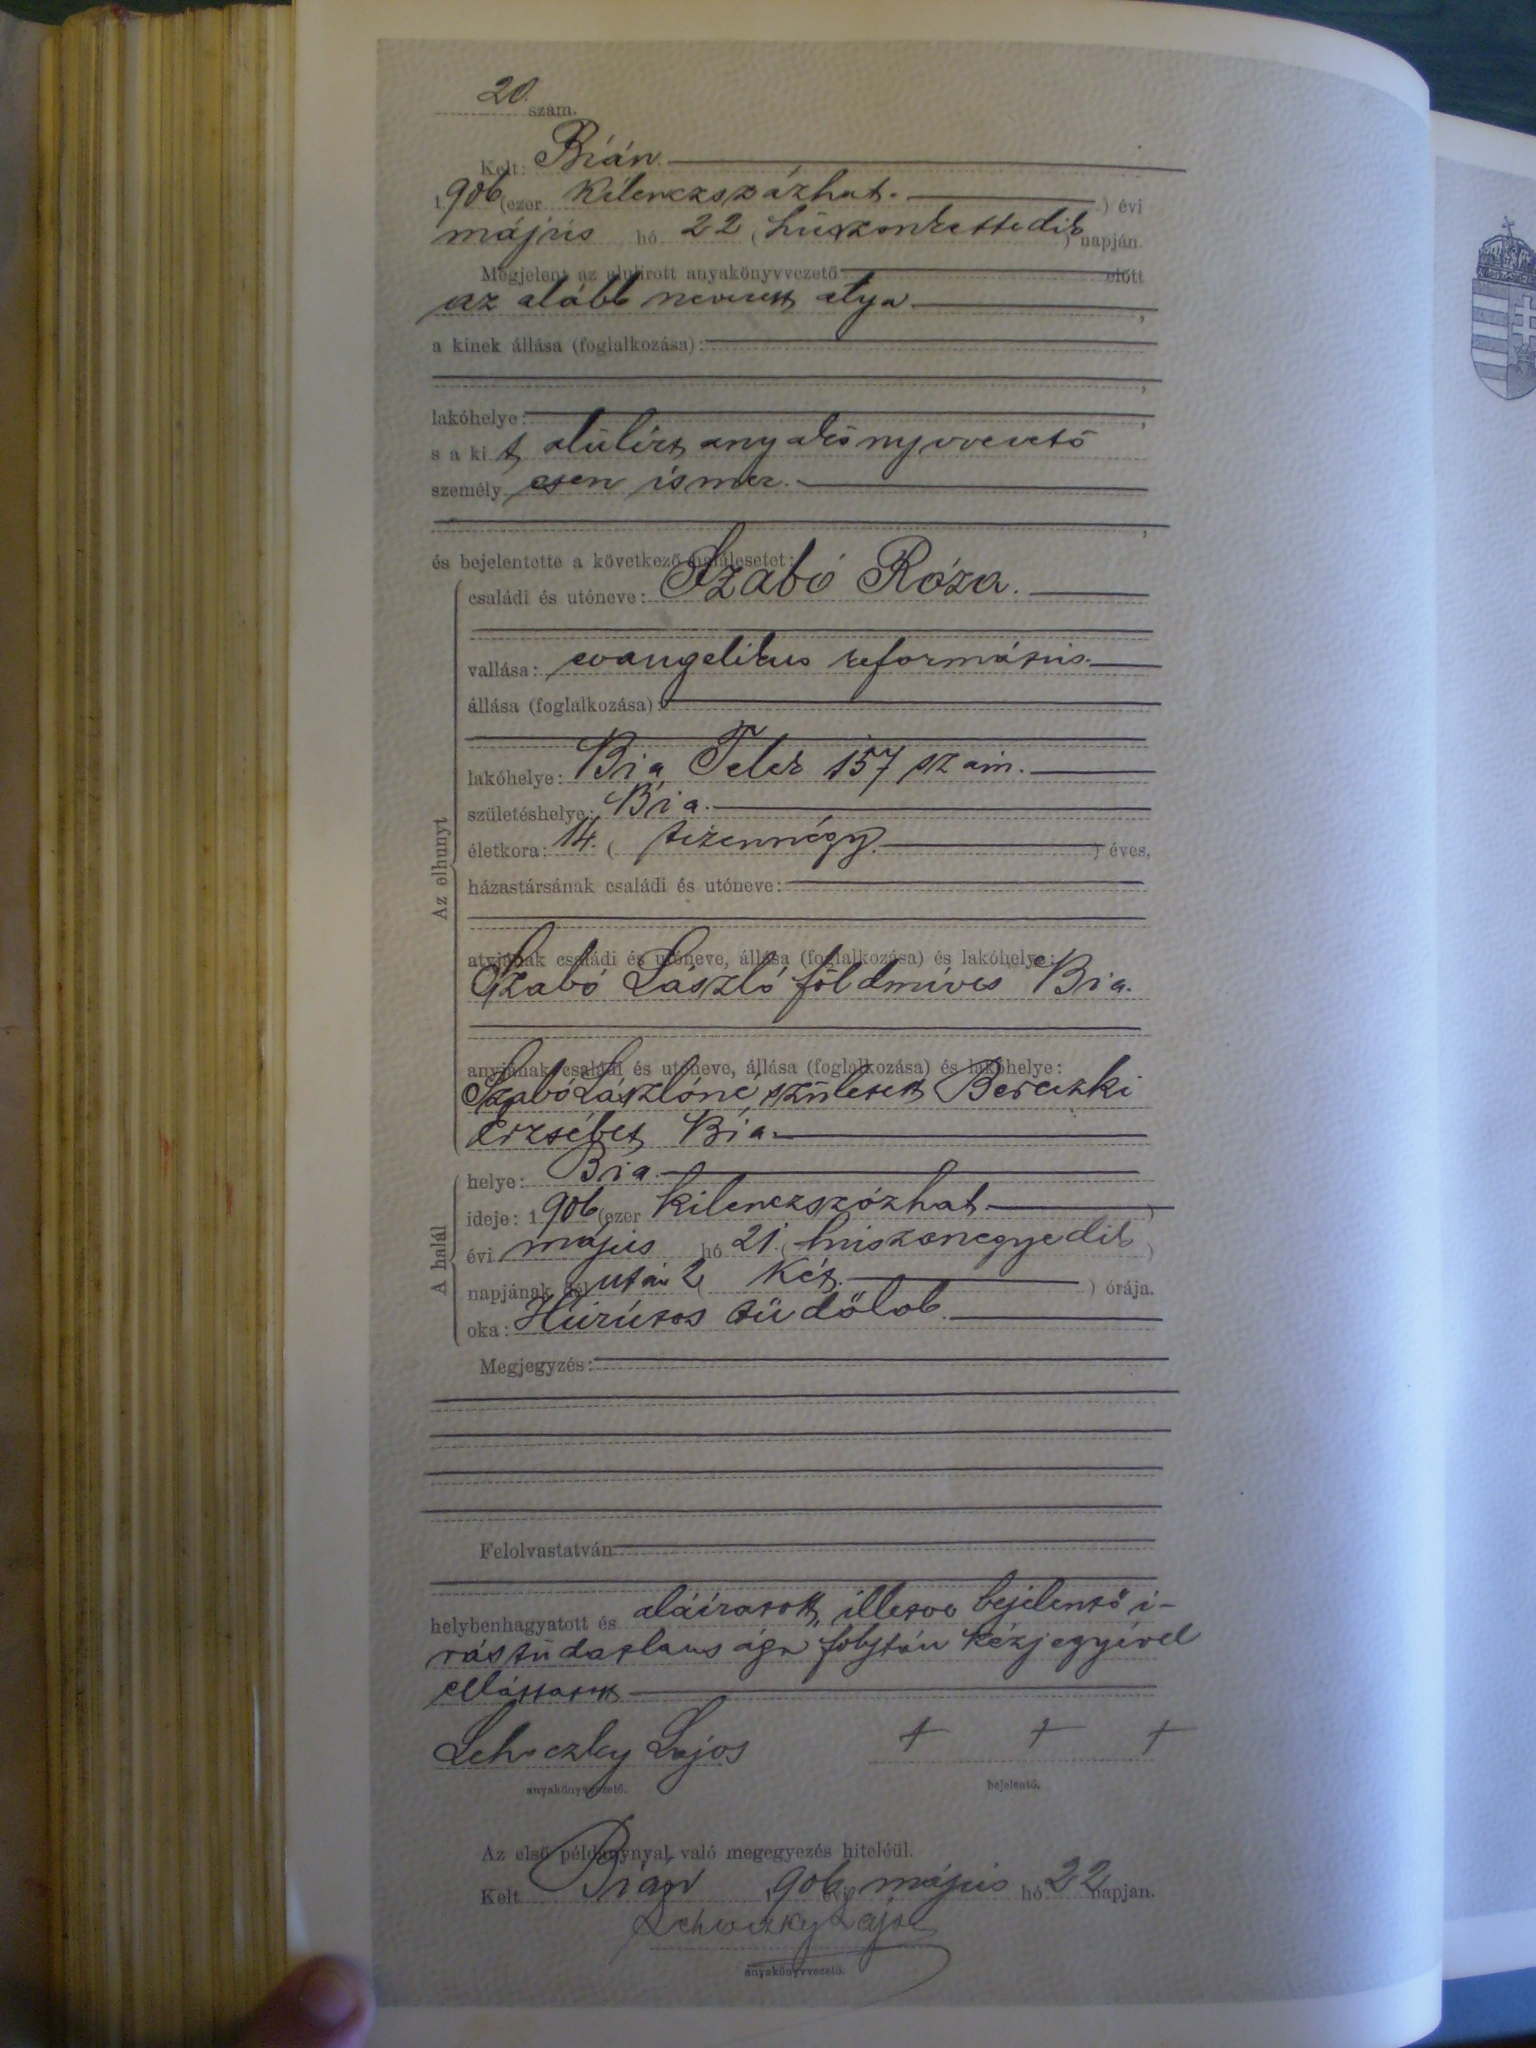 20. szám.
Kelt: Bián.
1906 (ezer kilenczszázhat. ) évi
május hó 22 (húszonkettedik ) napján.
Megjelent az alulírott anyakönyvvezető előtt
az alább nevezett atya. ,
a kinek állása (foglalkozása):
,
lakóhelye: ,
s a kit alúlírt anyakönyvvezető
személyesen ismer.
,
és bejelentette a következő halálesetet:
Az elhunyt
családi és utóneve: Szabó Róza.
vallása: evangelikus református.
állása (foglalkozása):
lakóhelye: Bia Telek 157 szám.
születéshelye: Bia.
életkora: 14. ( tizennégy. ) éves,
házastársának családi és utóneve:
atyjának családi és utóneve, állása (foglalkozása) és lakóhelye:
Szabó László földmíves Bia.
anyjának családi és utóneve, állása (foglalkozása) és lakóhelye:
Szabó Lászlóné született Bereczki
Erzsébet Bia.
A halál
helye: Bia.
ideje: 1906 (ezer kilenczszázhat. )
évi május hó 21. (huszonegyedik )
napjának dél után 2 ( két. ) órája.
oka: Húrútos tüdőlob.
Megjegyzés:
Felolvastatván
helybenhagyatott és aláíratott, illetve bejelentő i-
rástúdatlansága folytán kézjegyével
elláttatott
Lehoczky Lajos + + +
anyakönyvvezető. bejelentő.
Az első példánynyal való megegyezés hiteléül.
Kelt Bián 1906 évi május hó 22 napján.
Lehoczky Lajos
anyakönyvvezető.